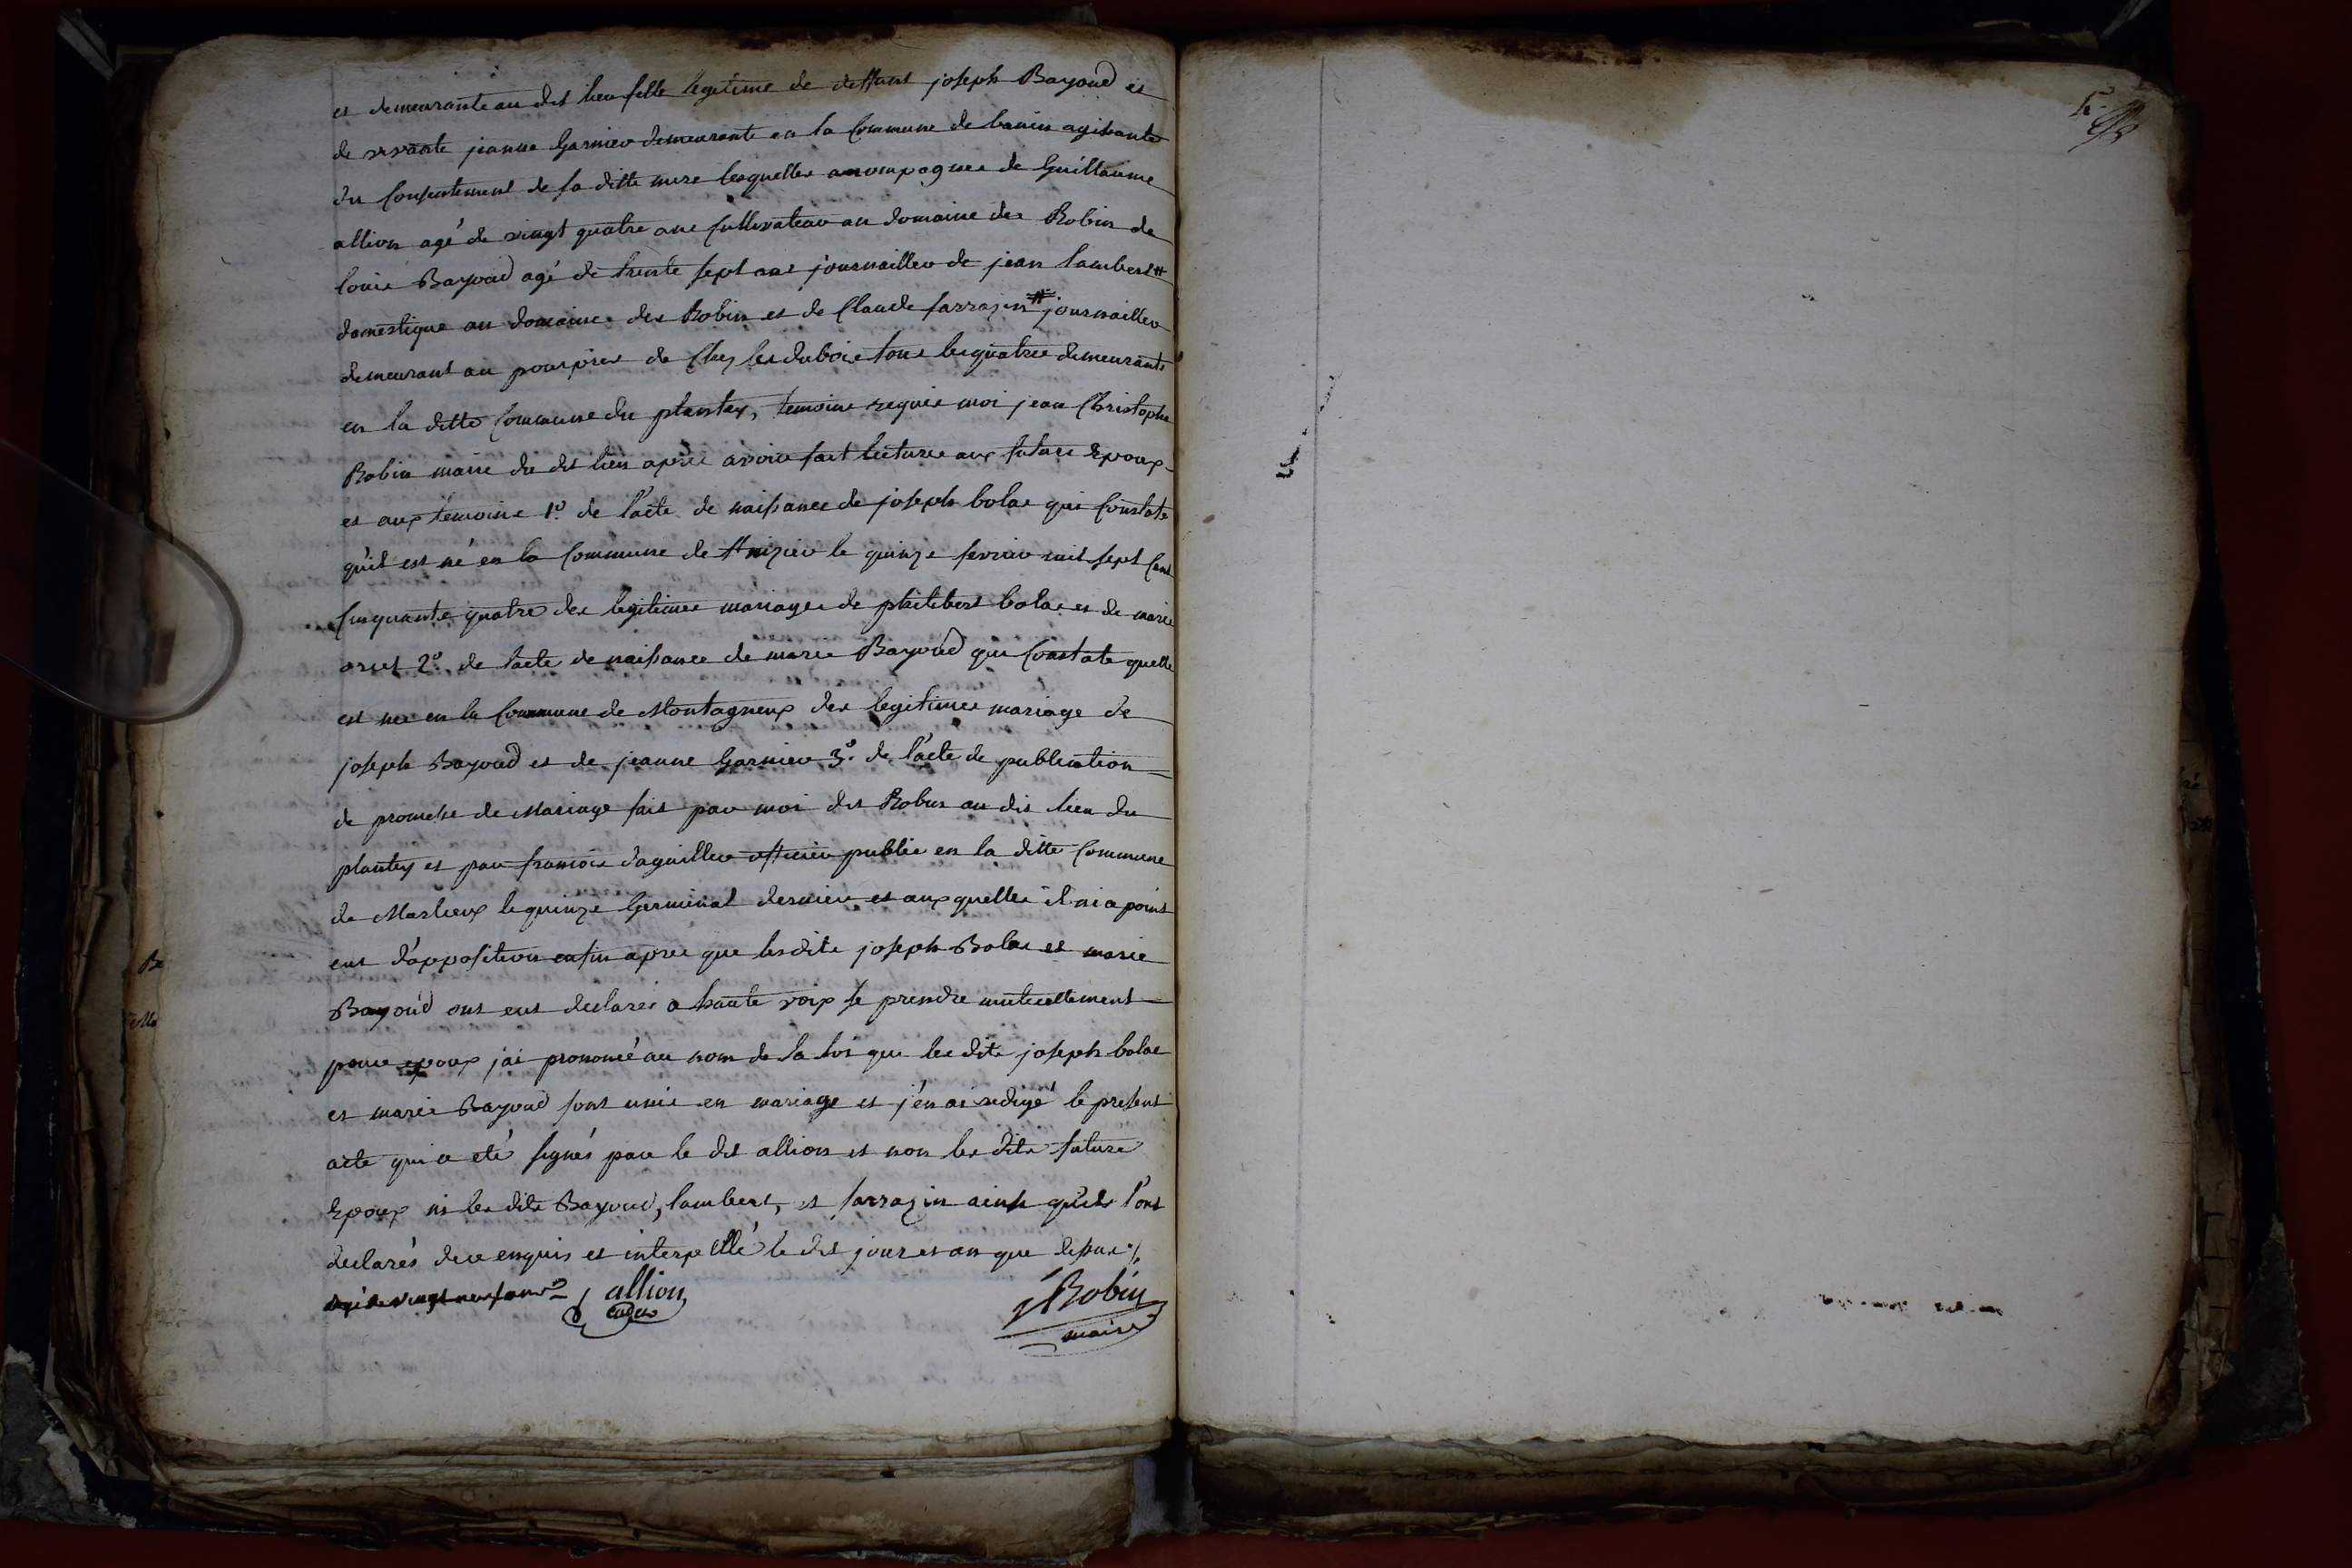 et demeurante au dit lieu fille legitime de deffunt joseph Bayoud et
de vivante jeanne Garnier demeurante en la Commune de agissante
du Consentement de sa ditte mere lesquelles acompagnes de Guillaume
allion agé de vingt quatre ans Cultivateur au domaine des Robin de
louis Bayoud agé de trente sept ans journaillier de jean lambert #
domestique au domaine des Robin et de Claude sarrazin # journaillier
demeurant au pourpris de Chez les dubois tous les quatres demeurants
en la ditte Commune du plantay, temoins requis moi jean Christophe
Robin maire du dit lieu après avoir fait lectures aux futurs Epoux
et aux temoins 1º. de l'acte de naissance de joseph bolas qui Constate
qu'il est né en la Commune de St nizier le quinze fevrier mil sept Cent
Cinquante quatre des legitimes mariages de philibert bolas et de marie
2º. de l'acte de naissance de marie Bayoud qui Constate quelle
est nee en la Commune de Montagneux des legitimes mariage de
joseph Bayoud et de jeanne Garnier 3º. de l'acte de publication
de promesse de Mariage fait par moi dit Robin au dit lieu du
plantey et par francois officier public en la ditte Commune
de Marlieux le quinze Germinal dernier et aux quelles il ni a point
eut d'opposition enfin apres que lesdits joseph Bolas et marie
Bayoud ont eut declarés a haute voix se prendre mutuellement
pour epoux jai prononcé au nom de la loi que les dits joseph bolas
et marie Bayoud sont unis en mariage et j'en ai redigé le present
acte qui a eté signés par le dit allion et non les dits futurs
Epoux ni les dits Bayoud, lambert, et sarrazin ainsi qu'ils l'ont
declarés de ce enquis et interpellé le dit jour et an que dessus ./.
agé de vingt neuf ans
allion
cadet
J Robin
maire